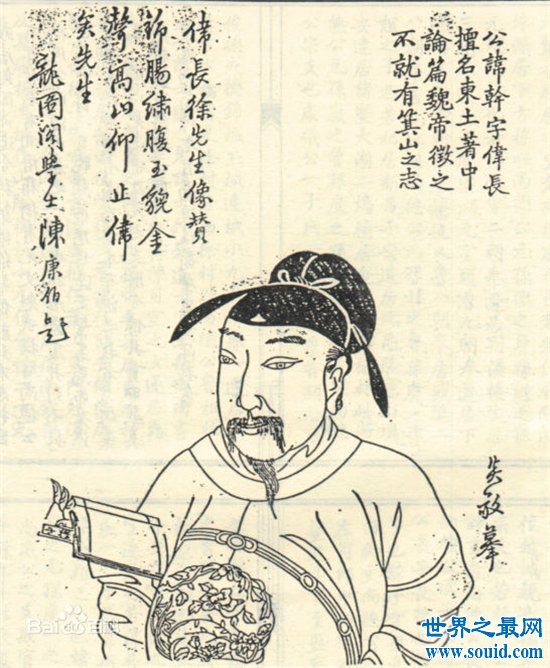 公諱幹字偉長
擅名東土著中
論篇魏帝徵之
不就有箕山之志
偉長徐先生像贊
錦腸繡腹玉貌金
聲高山仰止偉
矣先生
龍圖閣學士陳康伯題
吳敬摹
Bai百科
世界之最网
www.souid.com